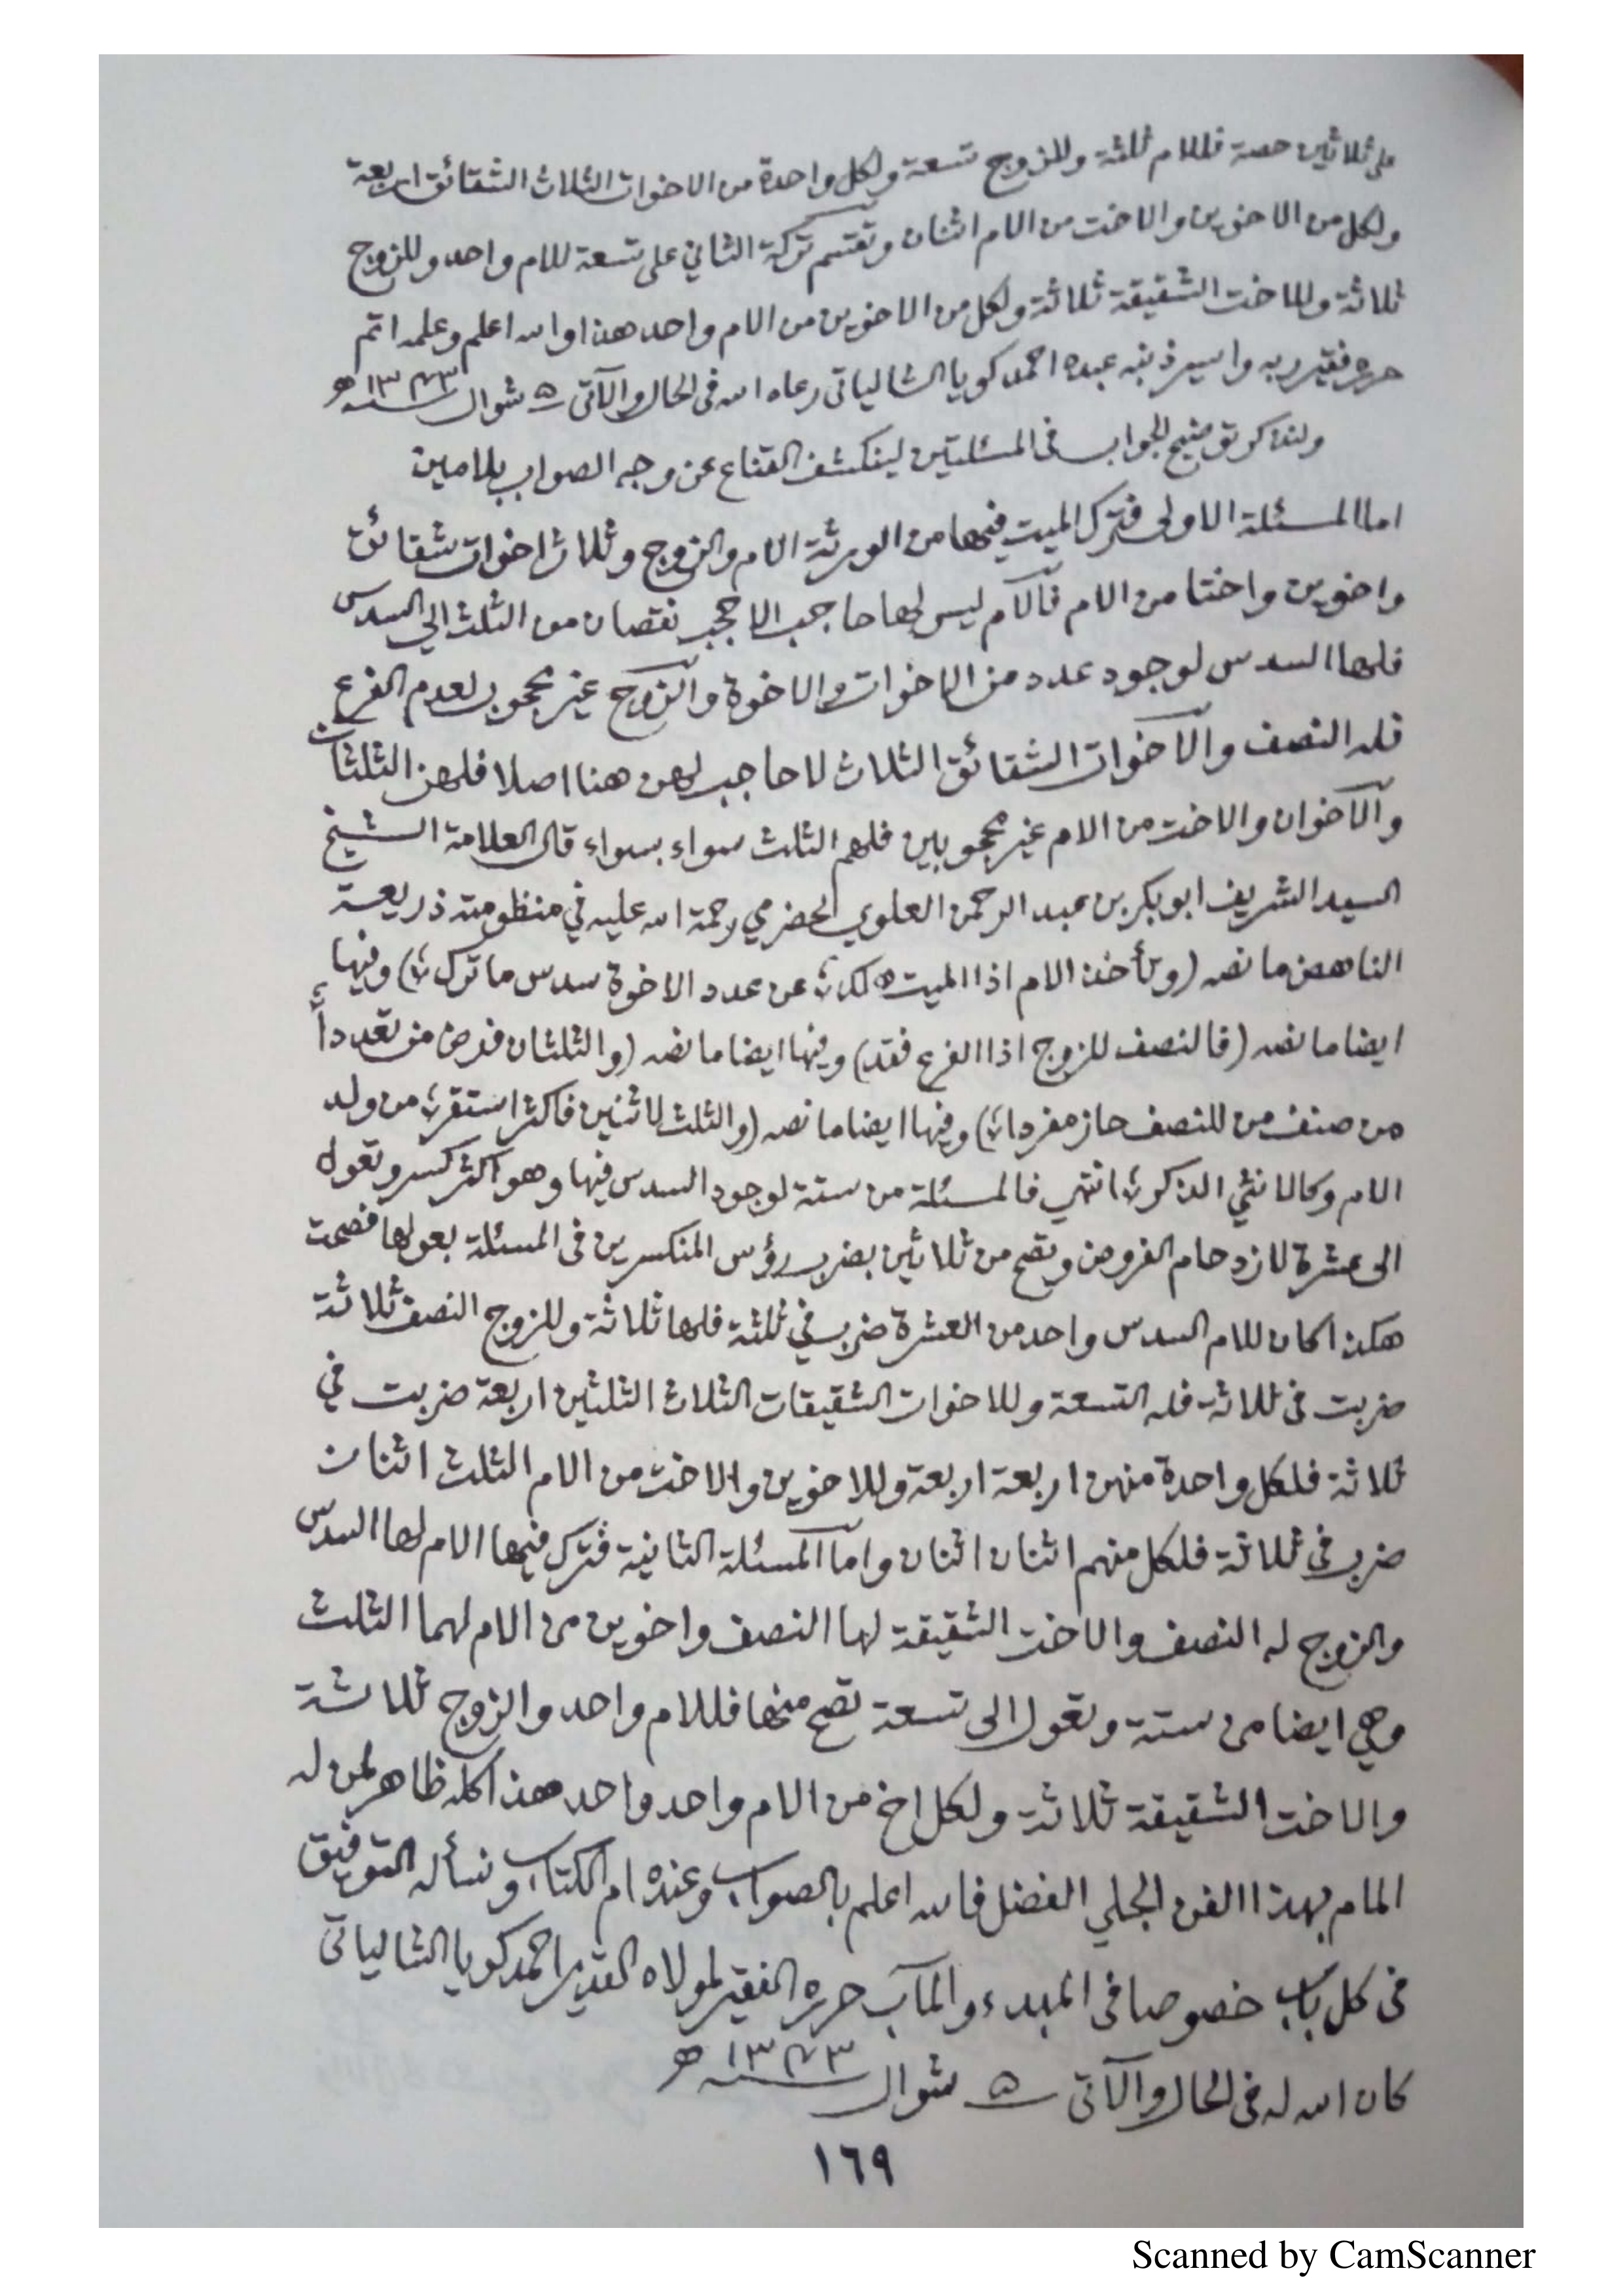 على ثلاثين حصة فللام ثلثة وللزوج تسعة ولكل واحدة من الاخوات الثلاث الشقائق اربعة
ولكل من الاخوين والاخت من الام اثنان وتقتسم تركة الثاني على تسعة للام واحد وللزوج
ثلاثة وللاخت الشقيقة ثلاثة ولكل من الاخوين من الام واحد هذا والله اعلم وعلمه اتم
حرره فقير ربه واسير ذنبه عبده احمد كويا الشالياتى رعاه الله فى الحال والآتى ۵ شوال سنة ١٣٧٣ ھ
ولنذكر توضيح الجواب فى المسئلتين لينكشف القناع عن وجه الصواب بلا مين
اما المسئلة الاولى فترك الميت فيها من الورثة الام والزوج وثلاث اخوات شقائق
واخوين واختا من الام فالآم ليس لها حاجب الا حجب نقصان من الثلث الى السدس
فلها السدس لوجود عدد من الاخوات والاخوة والزوج غير محجوب لعدم الفرع
فله النصف والآخوات الشقائق الثلاث لا حاجب لهن هنا اصلا فلهن الثلثان
والآخوان والاخت من الام غير محجوبين فلهم الثلث سواء بسواء قال العلامة الشيخ
السيد الشريف ابو بكر بن عبد الرحمن العلوي الحضرمي رحمة الله عليه في منظومته ذريعة
الناهض ما نصه (وتأخذ الام اذا الميت هلك ؛ عن عدد الاخوة سدس ما ترك ؛) وفيها
ايضا ما نصه (فالنصف للزوج اذا الفرع فقد) وفيها ايضا ما نصه (والثلثان فرض من تعدداً ؛
من صنف من للنصف حاز مفردا ؛) وفيها ايضا ما نصه (والثلث لاثنين فاكثر استقر ؛ من ولد
الام وكالانثي الذكر ؛) انتهي فالمسئلة من ستة لوجود السدس فيها وهو اكثر كسر وتعول
الى عشرة لازدحام الفروض وتصح من ثلاثين بضرب رؤس المنكسرين فى المسئلة بعولها فصحت
هكذا كان للام السدس واحد من العشرة ضرب في ثلثة فلها ثلاثة وللزوج النصف ثلاثة
ضربت فى ثلاثة فله التسعة وللاخوات الشقيقات الثلاث الثلثين اربعة ضربت في
ثلاثة فلكل واحدة منهن اربعة اربعة وللاخوين والاخت من الام الثلث اثنان
ضرب فى ثلاثة فلكل منهم اثنان اثنان واما المسئلة الثانية فترك فيها الام لها السدس
والزوج له النصف والاخت الشقيقة لها النصف واخوين من الام لهما الثلث
وهي ايضا من ستة وتعول الى تسعة تصح منها فللام واحد والزوج ثلاثة
والاخت الشقيقة ثلاثة ولكل اخ من الام واحد واحد هذا كله ظاهر لمن له
المام بهذا الفن الجلي الفضل فالله اعلم بالصواب وعنده ام الكتاب ونسأله التوفيق
فى كل باب خصوصا فى المبدء والمآب حرره الفقير لمولاه القدير احمد كويا الشالياتى
كان الله له فى الحال والآتى ۵ شوال سنة ١٣٧٣ ھ
١٦٩
Scanned by CamScanner